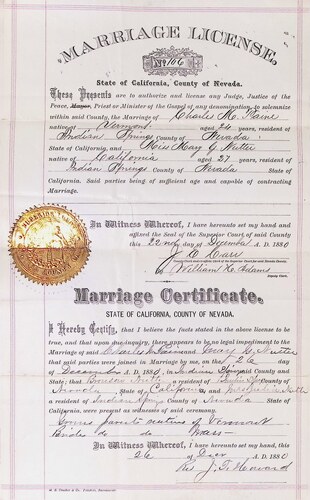 MARRIAGE LICENSE.
No. 106
State of California, County of Nevada.
These Presents are to authorize and license any Judge, Justice of the
Peace, Mayor, Priest or Minister of the Gospel of any denomination, to solemnize
within said County, the Marriage of Charles M. Paine
native of Vermont aged 34 years, resident of
Indian Springs County of Nevada
State of California, and Miss Mary G. Nutter
native of California aged 27 years, resident of
Indian Springs County of Nevada State of
California. Said parties being of sufficient age and capable of contracting
Marriage.
In Witness Whereof, I have hereunto set my hand and
affixed the Seal of the Superior Court of said County
this 22nd day of December A. D. 1880
J. E. Carr
By William H. Adams
Deputy Clerk.
Marriage Certificate.
STATE OF CALIFORNIA, COUNTY OF NEVADA.
I Hereby Certify, that I believe the facts stated in the above license to be
true, and that upon due inquiry, there appears to be no legal impediment to the
Marriage of said Charles M. Paine and Mary G. Nutter
that said parties were joined in Marriage by me, on the 26 day
of December A. D. 1880, in Indian Springs County and
State; that a resident of County of
Nevada State of California and
a resident of Indian Springs County of Nevada State of
California, were present as witnesses of said ceremony.
Grooms parents natives of Vermont
Brides do do Mass
In Witness Whereof, I have hereunto set my hand, this
26 day of Decr A. D. 1880
Rev. J.